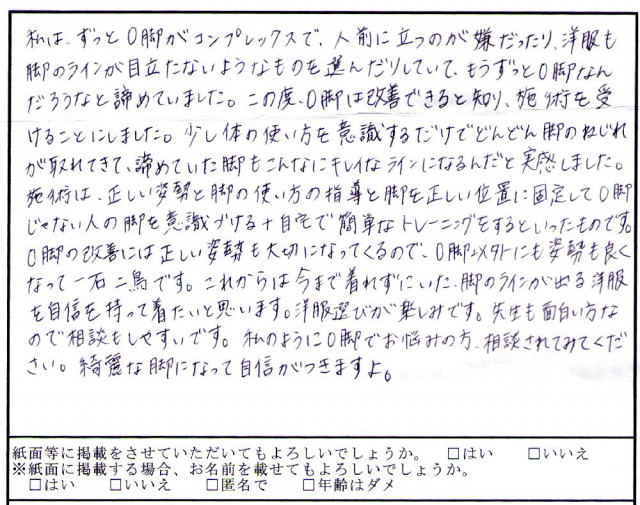 私は、ずっとO脚がコンプレックスで、人前に立つのが嫌だったり、洋服も
脚のラインが目立たないようなものを選んだりしていて、もうずっとO脚なん
だろうなと諦めていました。この度、O脚は改善できると知り、施術を受
けることにしました。少し体の使い方を意識するだけでどんどん脚のねじれ
が取れてきて、諦めていた脚もこんなにキレイなラインになるんだと実感しました。
施術は、正しい姿勢と脚の使い方の指導と脚を正しい位置に固定してO脚
じゃない人の脚を意識づける+自宅で簡単なトレーニングをするといったものです。
O脚の改善には正しい姿勢も大切になってくるので、O脚以外にも姿勢も良く
なって一石二鳥です。これからは今まで着れずにいた、脚のラインが出る洋服
を自信を持って着たいと思います。洋服選びが楽しみです。先生も面白い方な
ので相談もしやすいです。私のようにO脚でお悩みの方、相談されてみてくだ
さい。綺麗な脚になって自信がつきますよ。
紙面等に掲載をさせていただいてもよろしいでしょうか。 □はい □いいえ
※紙面に掲載する場合、お名前を載せてもよろしいでしょうか。
□はい □いいえ □匿名で □年齢はダメ